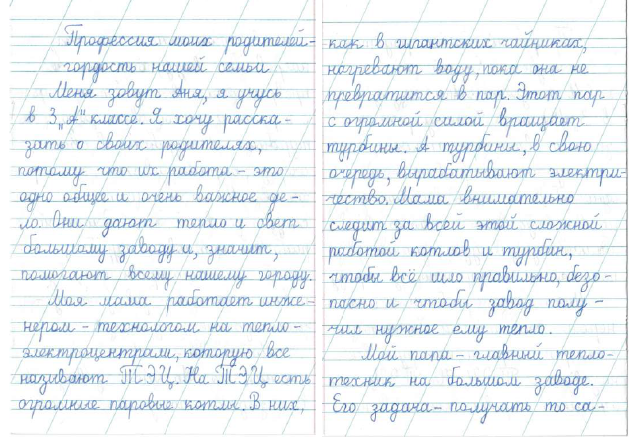 Профессия моих родителей-
гордость нашей семьи
Меня зовут Аня, я учусь
в 3 „А" классе. Я хочу расска-
зать о своих родителях,
потому что их работа - это
одно общее и очень важное де-
ло. Они дают тепло и свет
большому заводу и, значит,
помогают всему нашему городу.
Моя мама работает инже-
нером - технологом на тепло-
электроцентрали, которую все
называют ТЭЦ. На ТЭЦ есть
огромные паровые котлы. В них,
как в гигантских чайниках,
нагревают воду, пока она не
превратится в пар. Этот пар
с огромной силой вращает
турбины. А турбины, в свою
очередь, вырабатывают электри-
чество. Мама внимательно
следит за всей этой сложной
работой котлов и турбин,
чтобы всё шло правильно, безо-
пасно и чтобы завод полу-
чил нужное ему тепло.
Мой папа - главный тепло-
техник на большом заводе.
Его задача - получать то са-